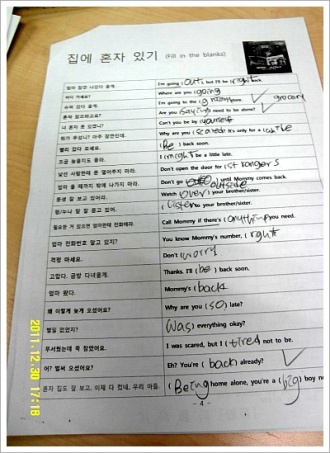 집에 혼자 있기 (Fill in the blanks)
엄마 잠깐 나갔다 올게. I'm going (out), but I'll be (right) back.
어디 가세요? Where are you (going
슈퍼 갔다 올게. I'm going to the (g grocery
혼자 있으라고요? Are you (saying I need to be alone?
너 혼자 못 있겠니? Can't you be by (yourself
뭐가 무섭니? 아주 잠깐인데. Why are you (scared It's only for a (while
빨리 갔다 오세요. (Be ) back soon.
조금 늦을지도 몰라. I (might be a little late.
낯선 사람한테 문 열어주지 마라. Don't open the door for (strangers
엄마 올 때까지 밖에 나가지 마라. Don't go outside until Mommy comes back.
동생 잘 보고 있어라. Watch (over your brother/sister.
형/누나 말 잘 듣고 있어. (Listen your brother/sister.
필요한 거 있으면 엄마한테 전화해라. Call Mommy if there's (anything you need.
엄마 전화번호 알고 있지? You know Mommy's number, (right
걱정 마세요. Don't (worry
고맙다. 금방 다녀올게. Thanks. I'll (be ) back soon.
엄마 왔다. Mommy's (back
왜 이렇게 늦게 오셨어요? Why are you (so) late?
별일 없었지? (Was) everything okay?
무서웠는데 꾹 참았어요. I was scared, but I (tired not to be.
어? 벌써 오셨어요? Eh? You're ( back already?
혼자 집도 잘 보고, 이제 다 컸네, 우리 아들. (Being home alone, you're a (big) boy
- 4 -
2011.12.30 17:18